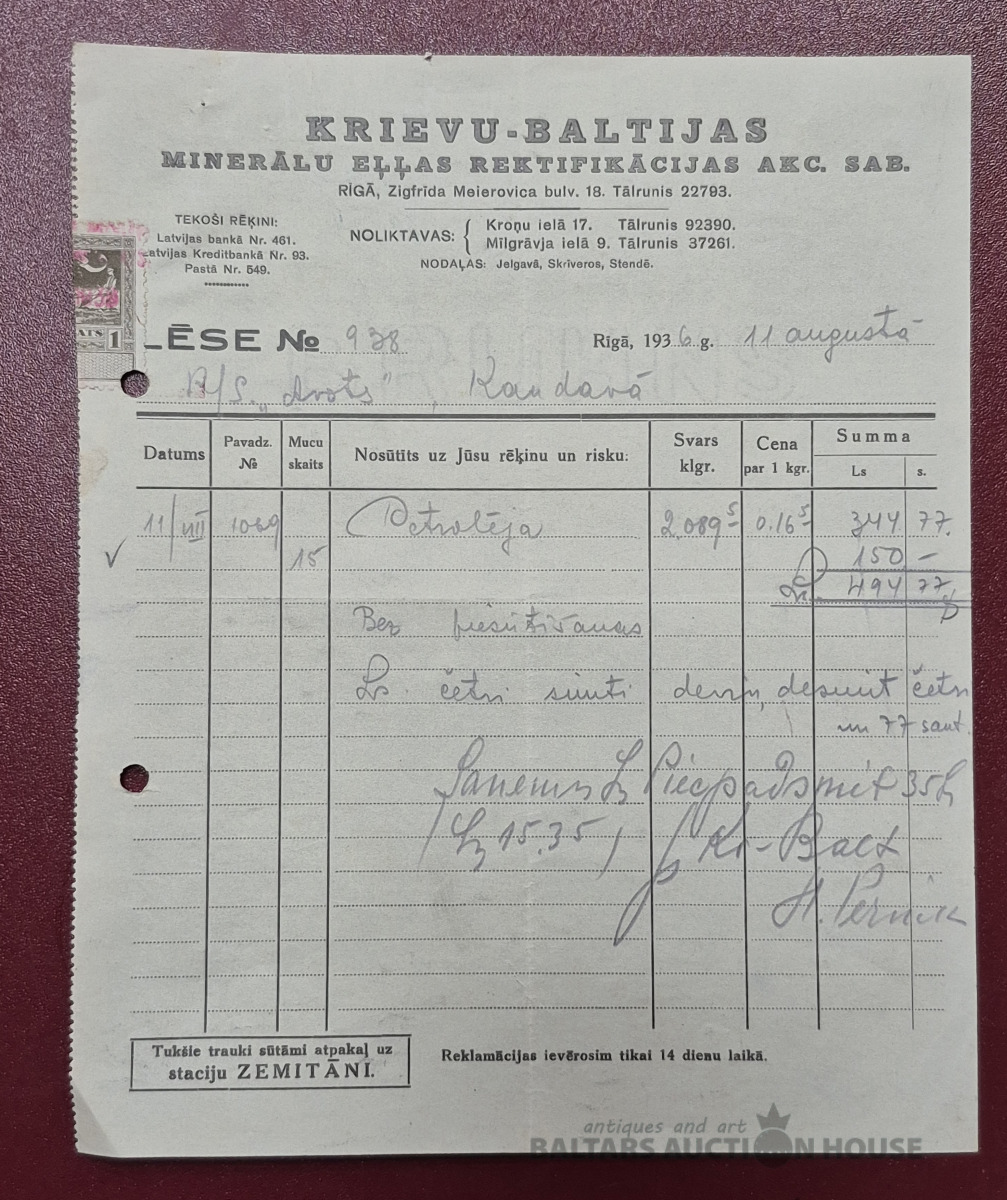 KRIEVU-BALTIJAS
MINERĀLU EĻĻAS REKTIFIKĀCIJAS AKC. SAB.
RĪGĀ, Zigfrīda Meierovica bulv. 18. Tālrunis 22793.
TEKOŠI RĒĶINI:
Latvijas bankā Nr. 461.
Latvijas Kreditbankā Nr. 93.
Pastā Nr. 549.
NOLIKTAVAS: { Kroņu ielā 17. Tālrunis 92390.
Mīlgrāvja ielā 9. Tālrunis 37261.
NODAĻAS: Jelgavā, Skrīveros, Stendē.
ATS 1
LĒSE № 938
Rīgā, 1936 g. 11 augustā
P/S. „Avots", Kandavā
Datums Pavadz. № Mucu skaits Nosūtīts uz Jūsu rēķinu un risku: Svars klgr. Cena par 1 kgr. Summa Ls s.
11/VIII 1069 Petroleja 2.089 5 0.16 5 344 77.
15 150 -
Ls. 494 77.
Bez piesūtīšanas
Ls. četri simti deviņ desmit četri
un 77 sant.
Saņemts Ls Piecpadsmit 35
(Ls 15.35) Kr-Balt
H. Pernik
Tukšie trauki sūtāmi atpakaļ uz
staciju ZEMITĀNI.
Reklamācijas ievērosim tikai 14 dienu laikā.
antiques and art
BALTARS AUCTION HOUSE